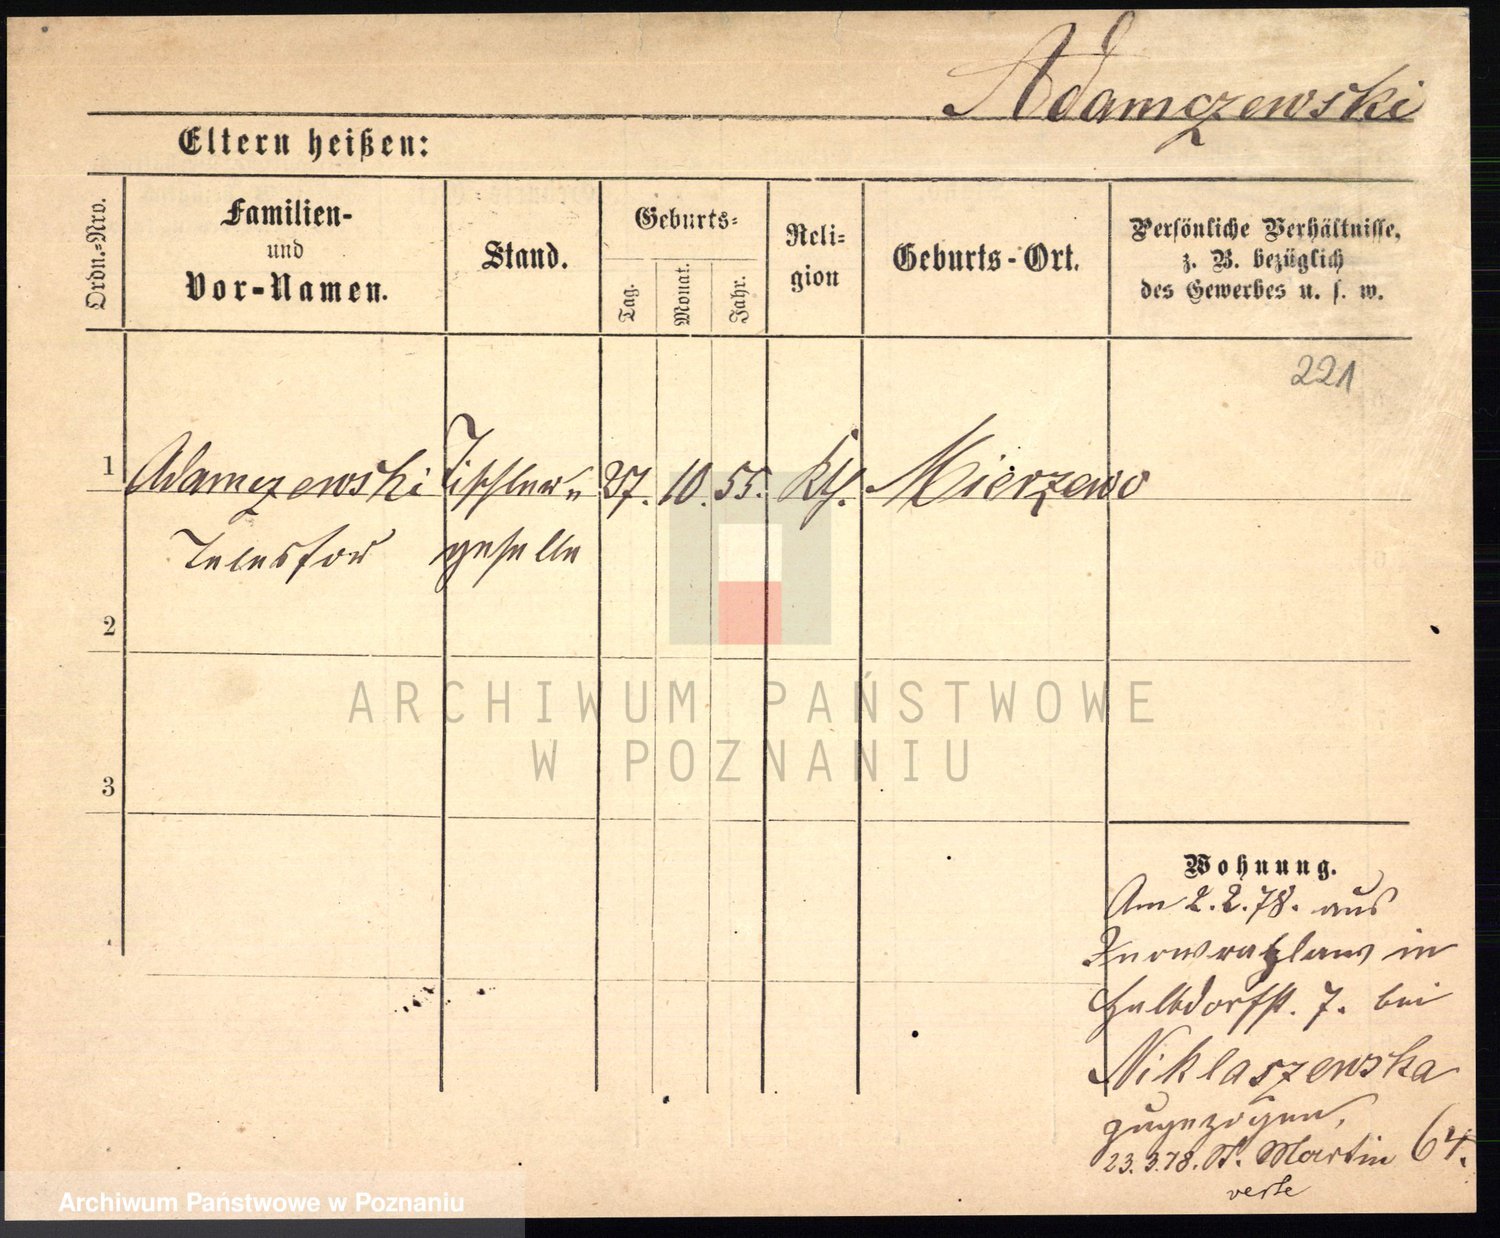 Adamczewski
Eltern heißen:
Ordn.-Nro.
Familien-
und
Vor-Namen.
Stand.
Geburts-
Tag.
Monat.
Jahr.
Reli-
gion
Geburts-Ort.
Persönliche Verhältnisse,
z. B. bezüglich
des Gewerbes u. s. w.
221
1 Adamczewski Tischler- 27. 10. 55. kth. Mierzewo
Telesfor geselle
2
3
ARCHIWUM PAŃSTWOWE
W POZNANIU
Wohnung.
Am 2.2.78. aus
Inowrazlaw in
Halbdorfst. 7. bei
Niklaszewska
zugezogen,
23.3.78. St. Martin 64.
verte
Archiwum Państwowe w Poznaniu